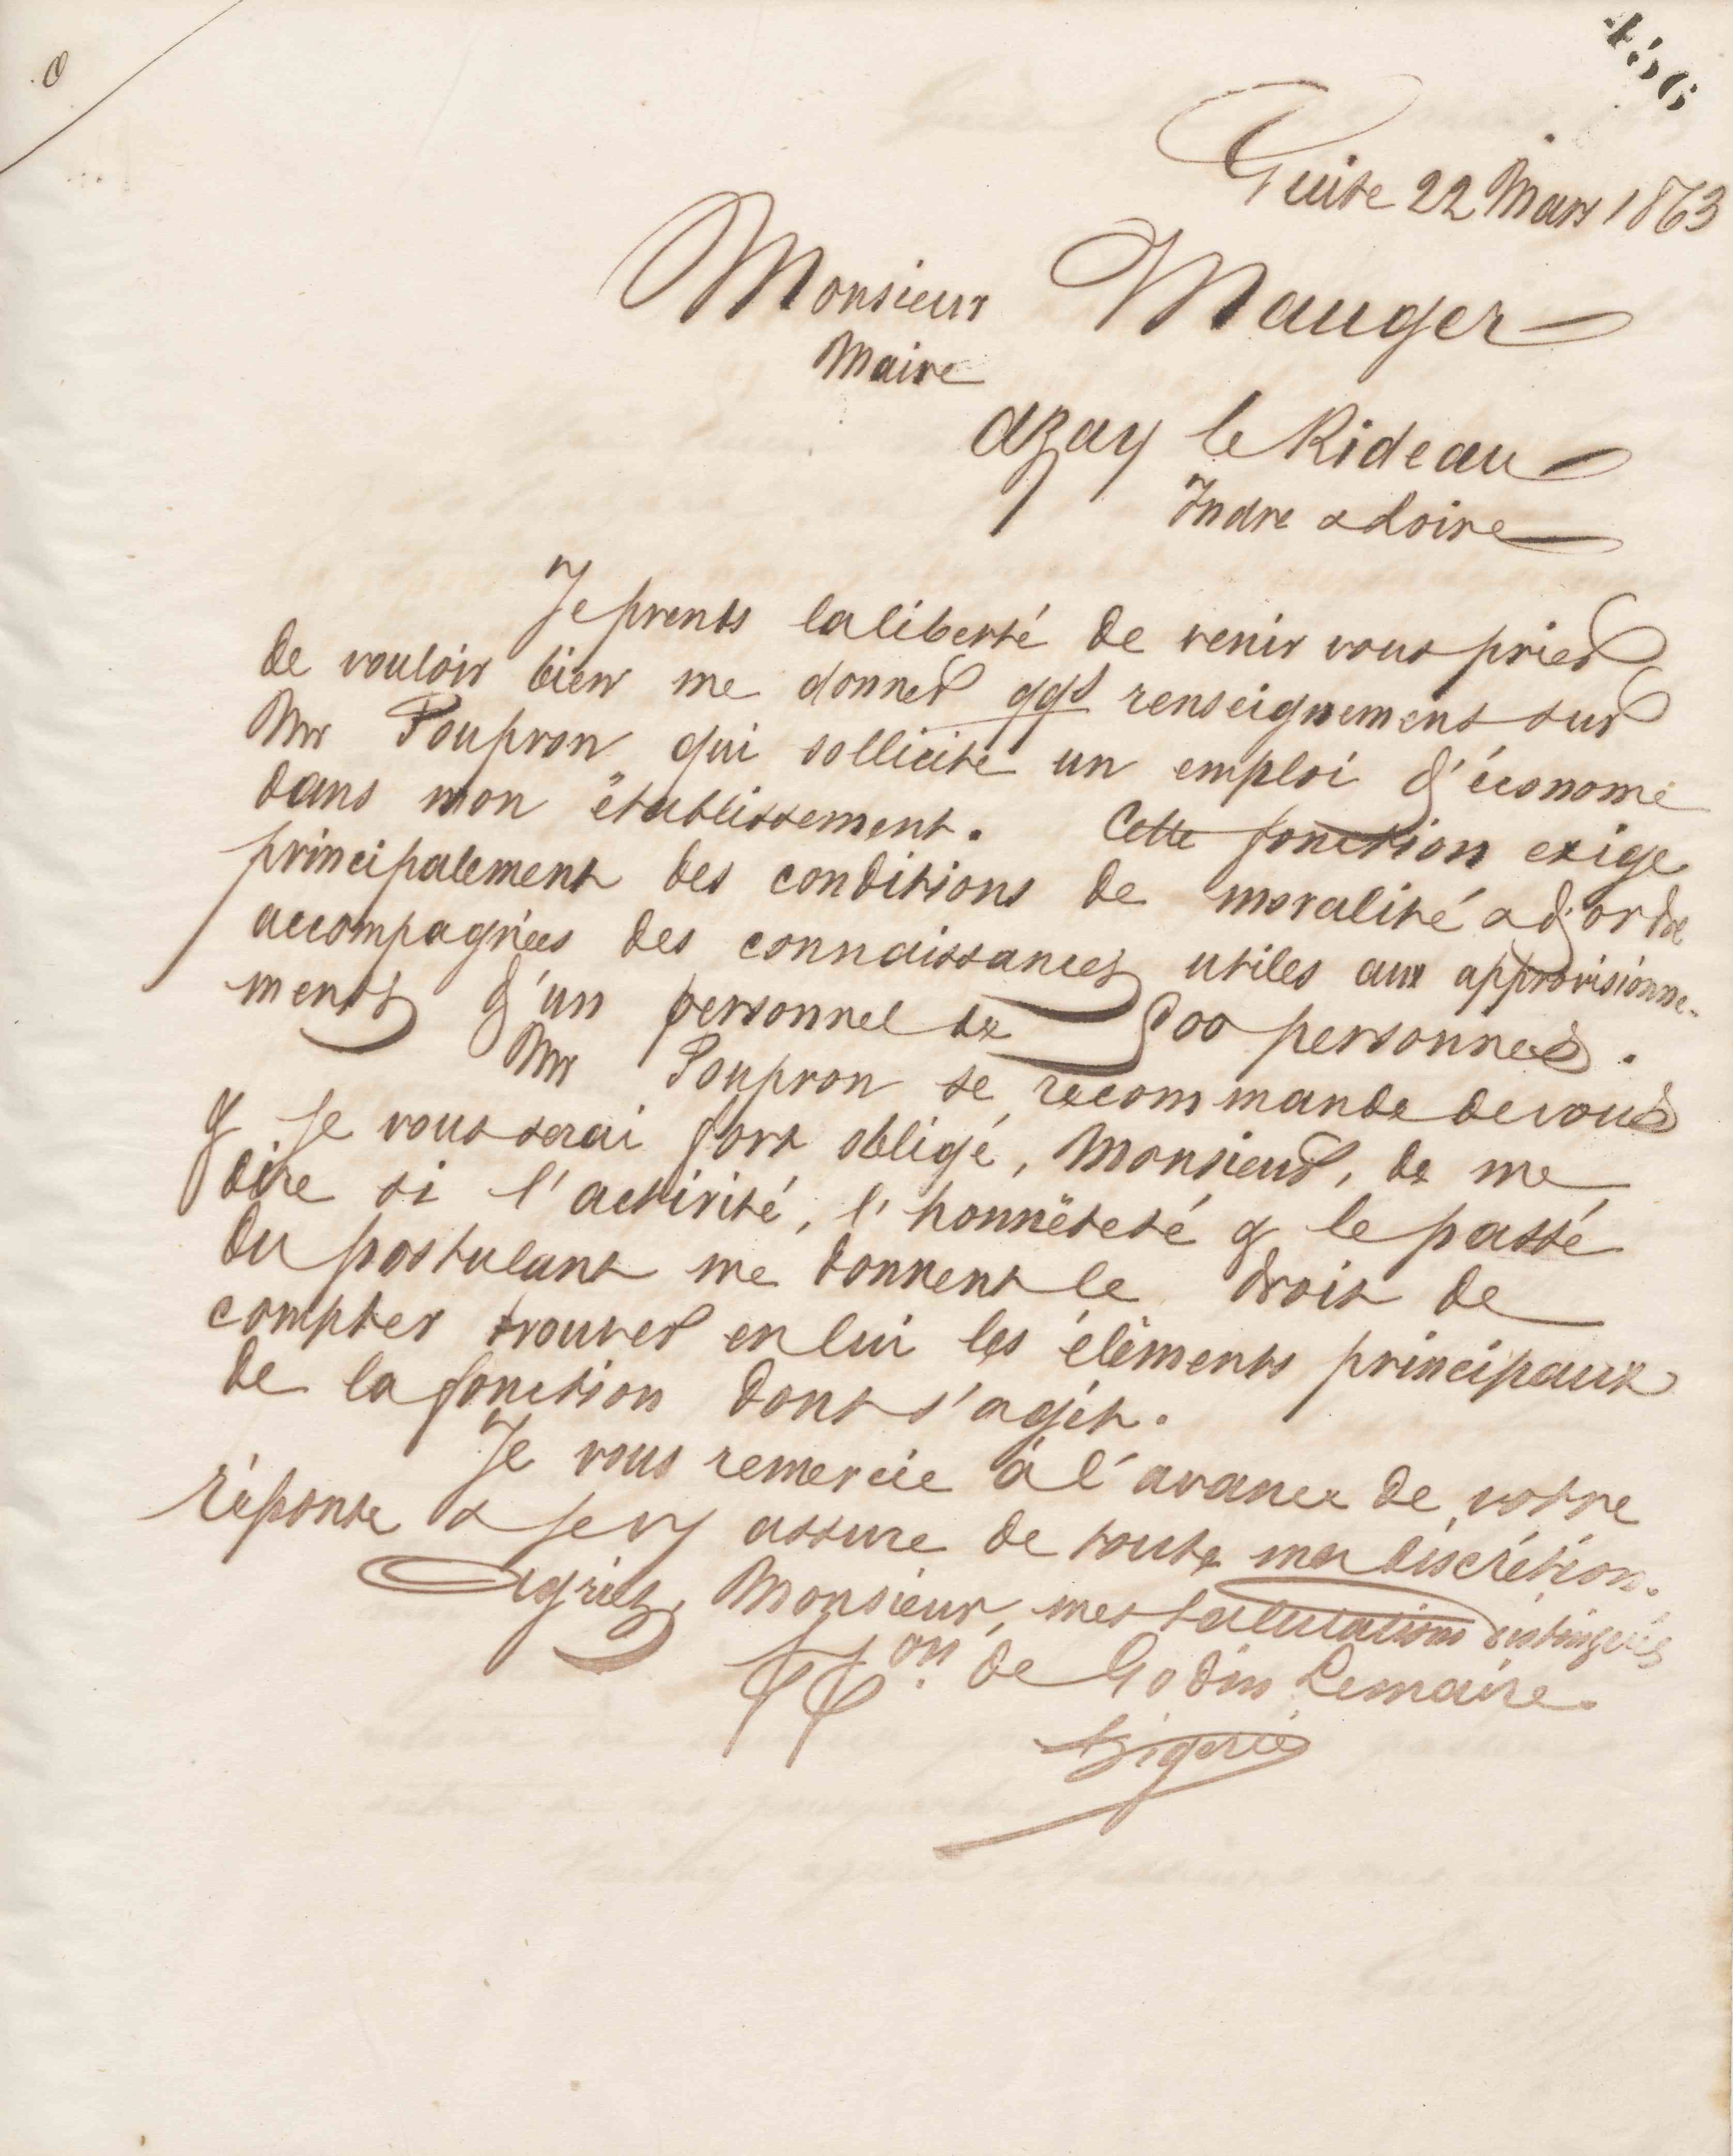 456
Guise 22 Mars 1863
Monsieur Mauger
Maire
Azay le Rideau
Indre & Loire
Je prends la liberté de venir vous prier
de vouloir bien me donner qqs renseignements sur
Mr Poupron qui sollicite un emploi d'économe
dans mon établissement. Cette fonction exige
principalement des conditions de moralité & d'ordre
accompagnées des connaissances utiles aux approvisionne-
ments d'un personnel de 800 personnes.
Mr Poupron se recommande de vous
& je vous serai fort obligé, Monsieur, de me
dire si l'activité, l'honnêteté & le passé
du postulant me donnent le droit de
compter trouver en lui les éléments principaux
de la fonction dont s'agit.
Je vous remercie à l'avance de votre
réponse & je vs assure de toute ma discrétion.
Agréez, Monsieur, mes salutations distinguées
de Godin Lemaire